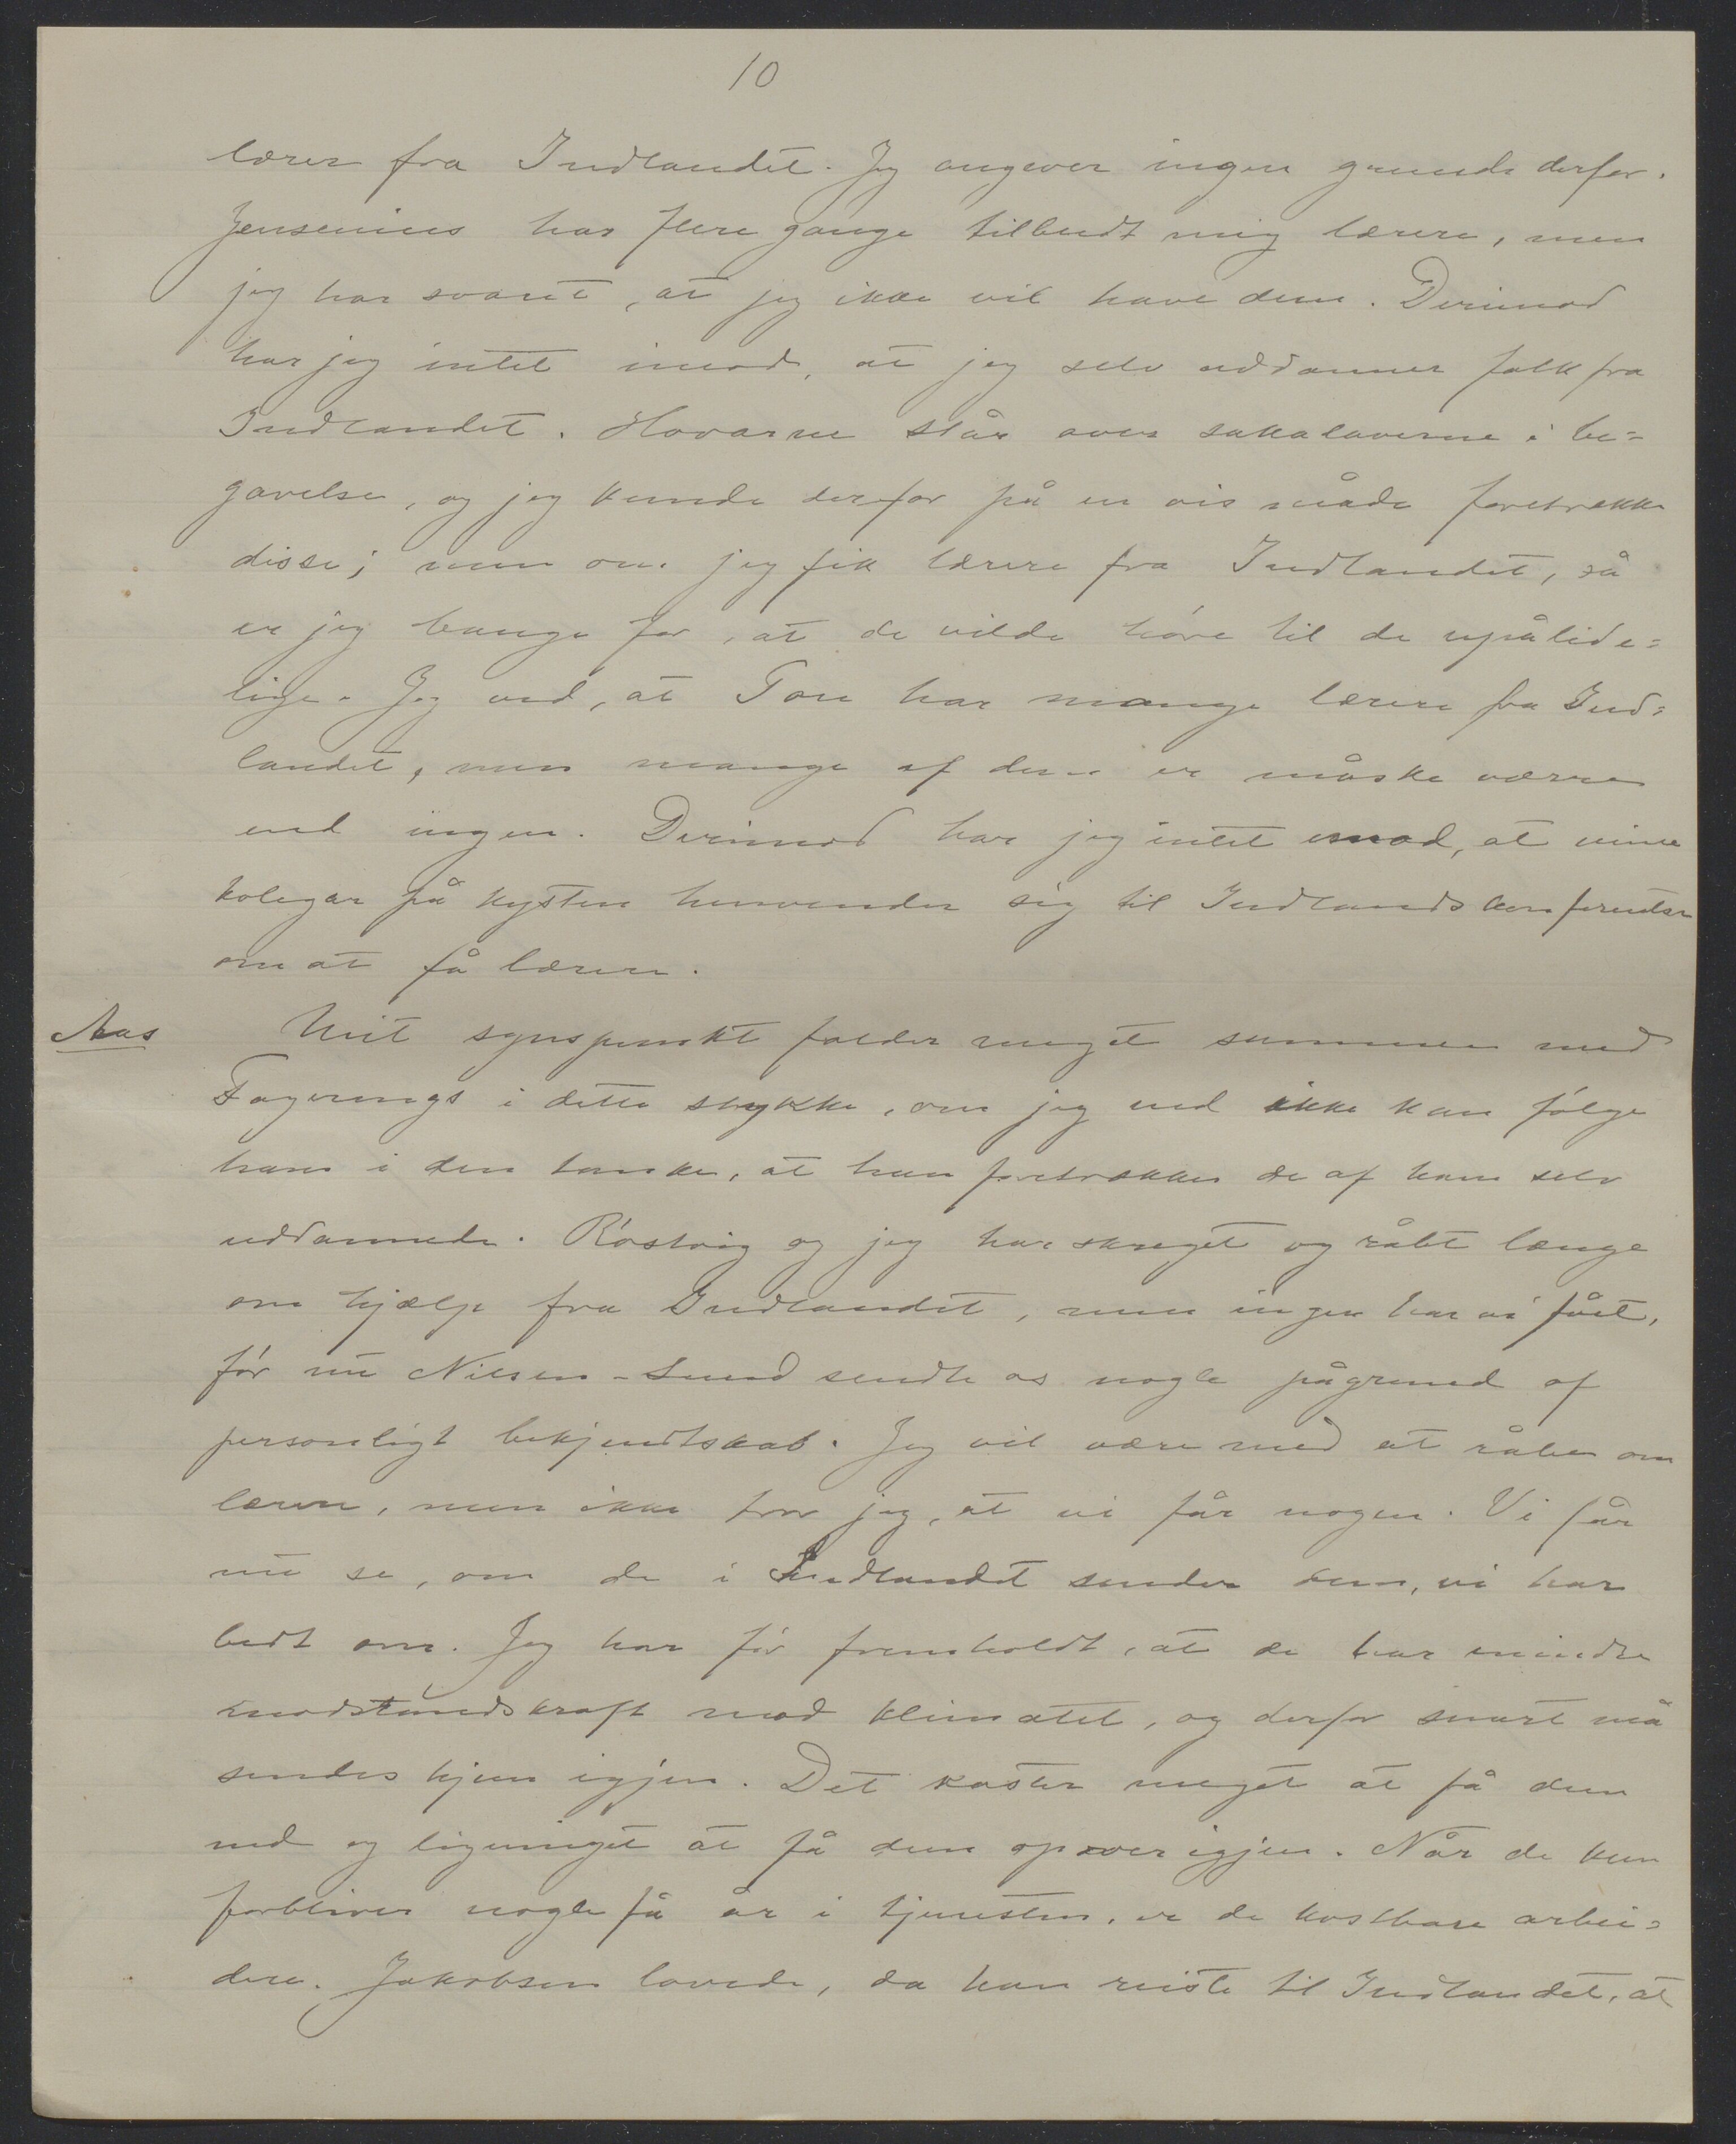 10
lærer fra Indlandet. Jeg angiver ingen grunde derfor.
Jensenius har flere gange tilbudt mig lærere, men
jeg har svaret, at jeg ikke vil have dem. Derimod
har jeg intet imod, at jeg selv uddanner folk fra
Indlandet. Hovarne står over sakalaverne i be=
gavelse, og jeg kunde derfor på en vis måde foretrække
disse; men om jeg fik lærere fra Indlandet, så
er jeg bange for, at de vilde høre til de upålide=
lige. Jeg ved, at Tou har mange lærere fra Ind=
landet, men mange af dem er måske værre
end ingen. Derimod har jeg intet imod, at mine
kolegar på kysten henvender sig til Indlandskonferentsen
om at få lærere.
Aas Mit synspunkt falder meget sammen med
Fagerengs i dette stykke, om jeg end ikke kan følge
ham i den tanke, at han foretrækker de af ham selv
uddannede. Røstvig og jeg har skreget og råbt længe
om hjælp fra Indlandet, men ingen har vi fået,
før nu Nilsen-Lund sendte os nogle pågrund af
personligt bekjendtskab. Jeg vil være med at råbe om
lærere, men ikke tror jeg, at vi får nogen. Vi får
nu se, om de i Indlandet sender dem, vi har
bedt om. Jeg har før fremholdt, at de har mindre
modstandskraft mod klimatet, og derfor snart må
sendes hjem igjen. Det koster meget at få dem
ned og ligemeget at få dem opover igjen. Når de kun
forbliver nogle få år i tjenesten, er de kostbare arbei=
dere. Jakobsen lovede, da han reiste til Indlandet, at